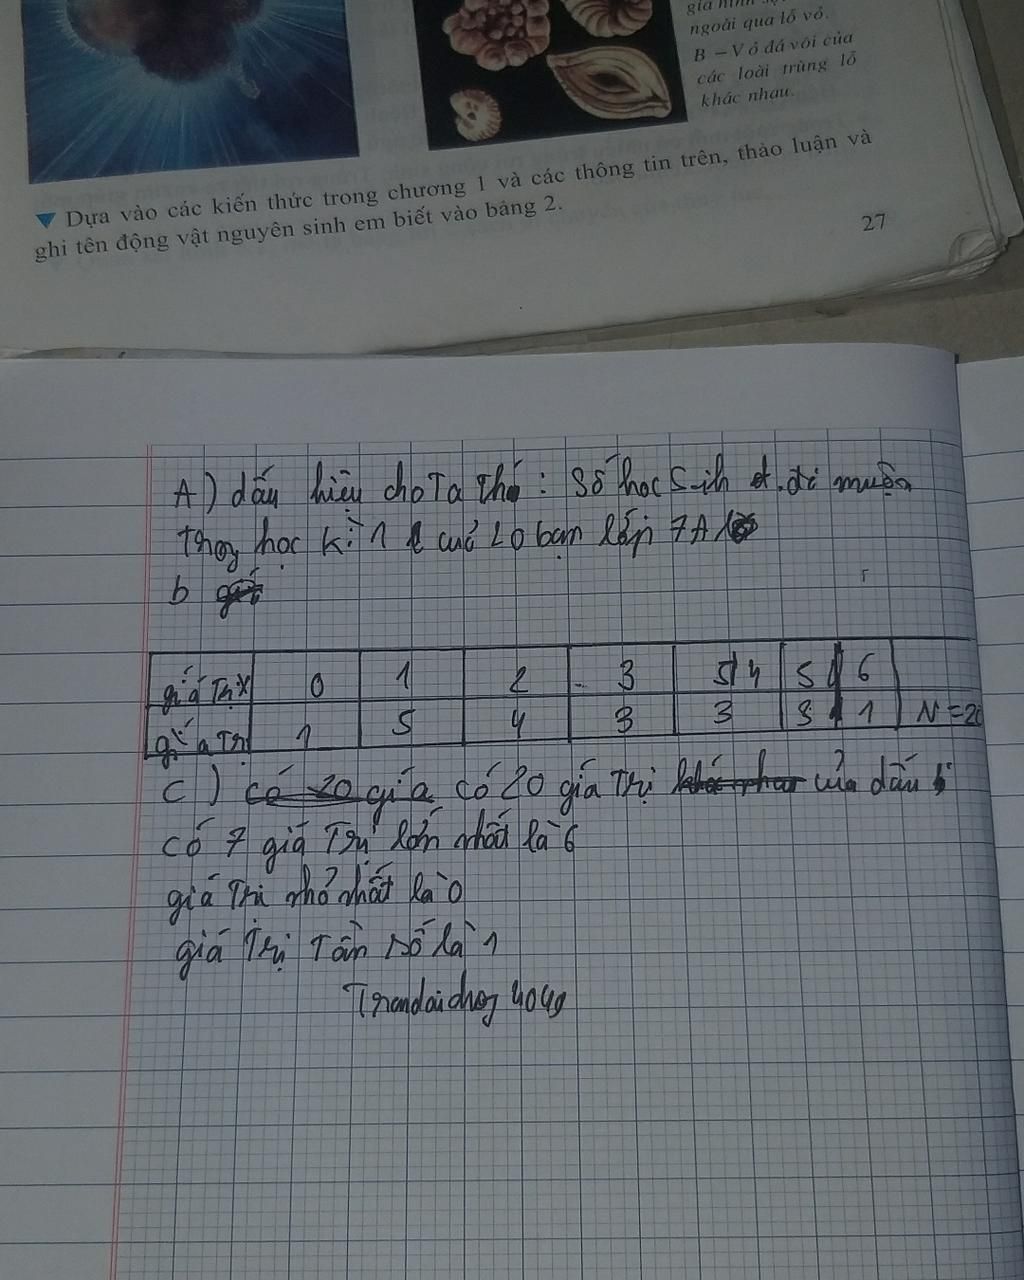 ngoài qua lỗ vỏ.
B – Vỏ đá vôi của
các loài trùng lỗ
khác nhau.
▼ Dựa vào các kiến thức trong chương 1 và các thông tin trên, thảo luận và
ghi tên động vật nguyên sinh em biết vào bảng 2.
27
A) dấu hiệu cho Ta : Số học Sinh đi muộn
học kì 1 20 bạn lớp 7A
b
giá Trị x 0 1 2 3 4 5 6
giá Trị 1 5 4 3 3 3 1 N = 20
c) có 20 giá Trị của dấu
có 7 giá Trị lớn nhất là 6
giá Trị nhỏ nhất là 0
giá Trị Tần số là 1